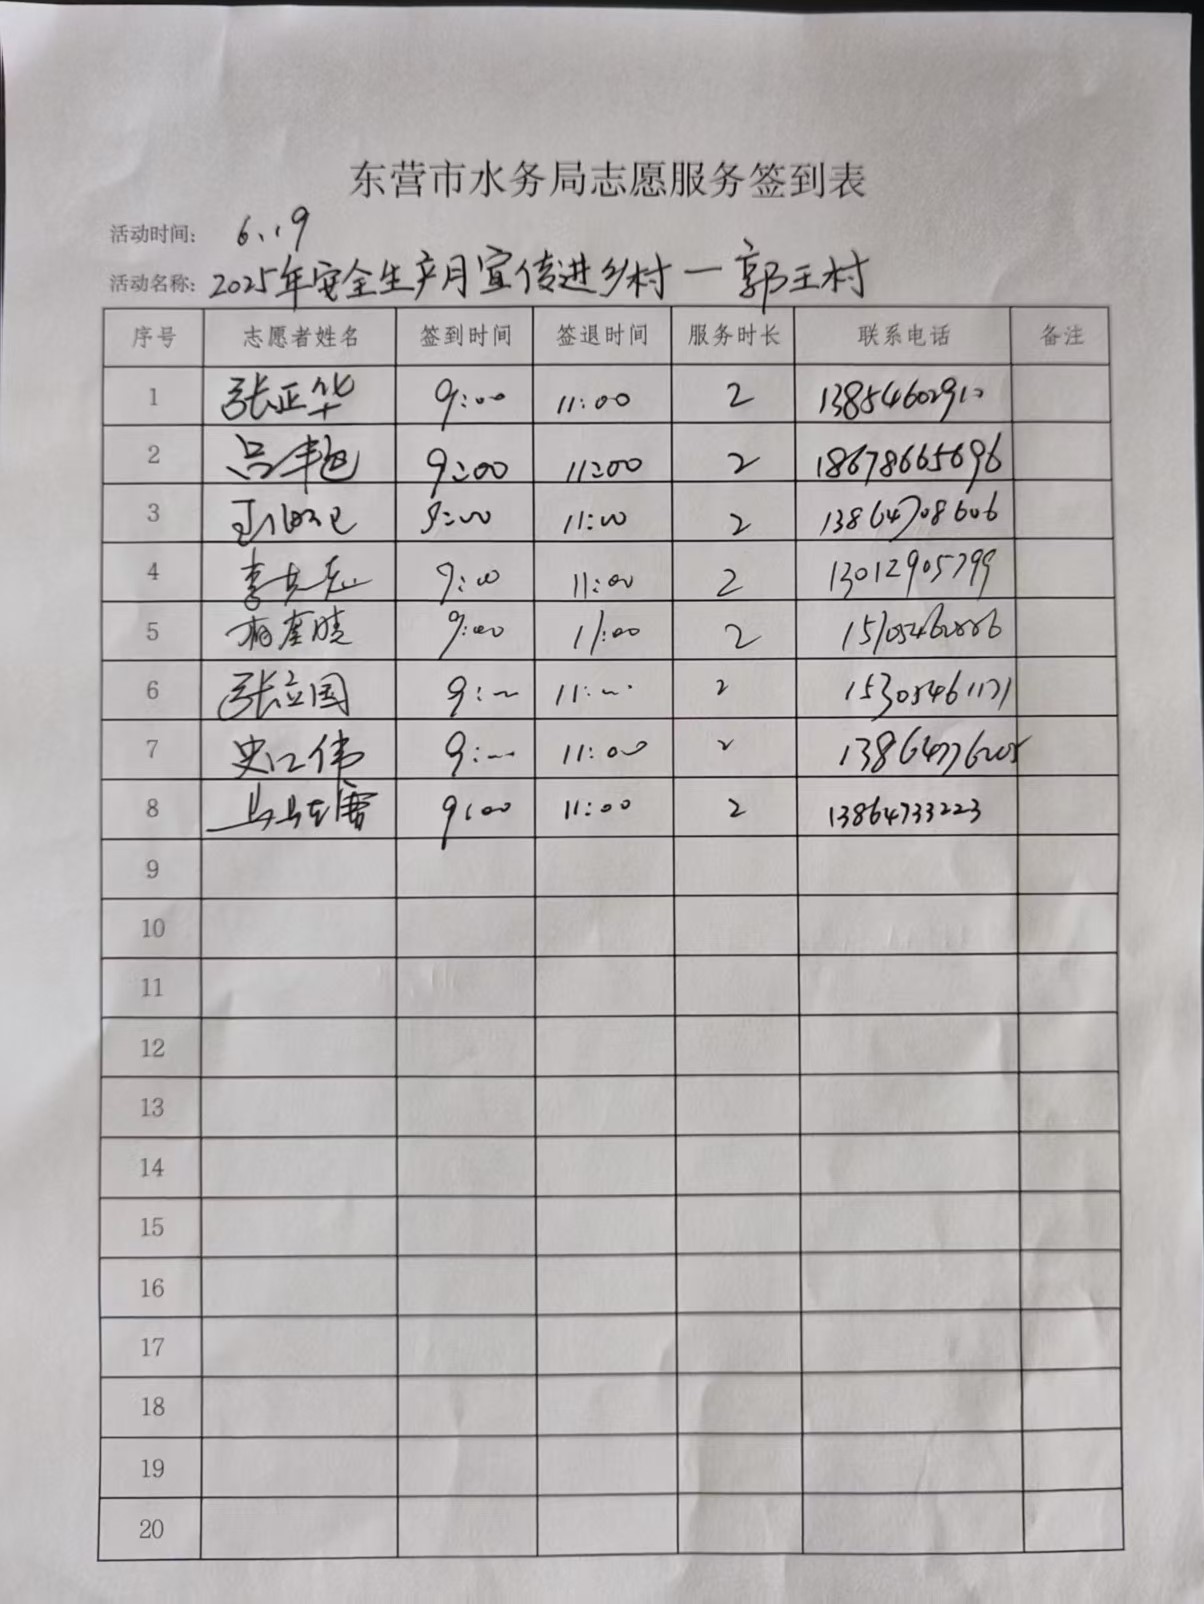 东营市水务局志愿服务签到表
活动时间: 6.19
活动名称: 2025年安全生产月宣传进乡村—郭王村
序号 志愿者姓名 签到时间 签退时间 服务时长 联系电话 备注
1 张正华 9:00 11:00 2 13854602910
2 吕丰艳 9:00 11:00 2 18678665696
3 9:00 11:00 2 13864708606
4 李 9:00 11:00 2 13012905799
5 杨奎晓 9:00 11:00 2
6 张立国 9:00 11:00 2 15305461171
7 史江伟 9:00 11:00 2
8 9:00 11:00 2 13864733223
9
10
11
12
13
14
15
16
17
18
19
20